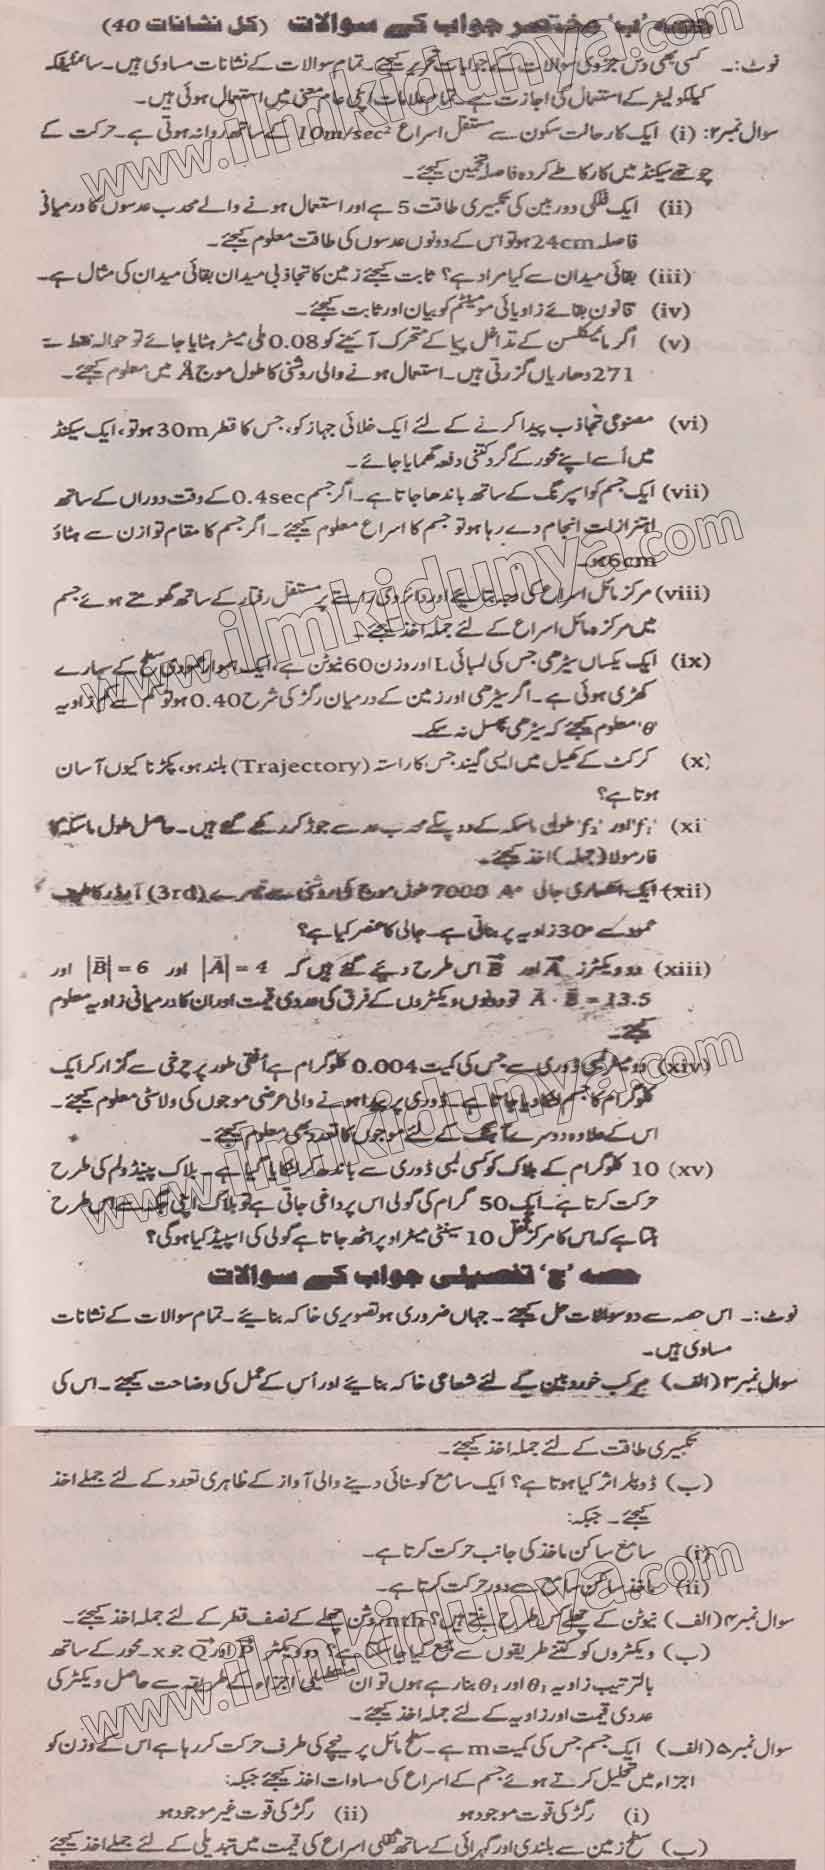 حصہ ’ب‘ مختصر جواب کے سوالات (کل نشانات 40)
نوٹ:۔ کسی بھی دس جزوی سوالات کے جوابات تحریر کیجئے۔ تمام سوالات کے نشانات مساوی ہیں۔ سائنٹیفک
کیلکولیٹر کے استعمال کی اجازت ہے۔ تمام علامات اپنی عام معنی میں استعمال ہوئی ہیں۔
سوال نمبر۲: (i) ایک کار حالت سکون سے مستقل اسراع 10m/sec² کے ساتھ روانہ ہوتی ہے۔ حرکت کے
چوتھے سیکنڈ میں کار کا طے کردہ فاصلہ تخمین کیجئے۔
(ii) ایک فلکی دوربین کی تکبیری طاقت 5 ہے اور استعمال ہونے والے محدب عدسوں کا درمیانی
فاصلہ 24cm ہو تو اس کے دونوں عدسوں کی طاقت معلوم کیجئے۔
(iii) بقائی میدان سے کیا مراد ہے؟ ثابت کیجئے زمین کا تجاذبی میدان بقائی میدان کی مثال ہے۔
(iv) قانون بقائے زاویائی مومینٹم کو بیان اور ثابت کیجئے۔
(v) اگر مائیکلسن کے تداخل پیا کے متحرک آئینے کو 0.08 ملی میٹر ہٹایا جائے تو حوالہ نقطہ سے
271 دھاریاں گزرتی ہیں۔ استعمال ہونے والی روشنی کا طول موج Å میں معلوم کیجئے۔
(vi) مصنوعی تجاذب پیدا کرنے کے لئے ایک خلائی جہاز کو، جس کا قطر 30m ہو تو، ایک سیکنڈ
میں اُسے اپنے محور کے گرد کتنی دفعہ گھمایا جائے۔
(vii) ایک جسم کو اسپرنگ کے ساتھ باندھا جاتا ہے۔ اگر جسم 0.4sec کے وقت دوراں کے ساتھ
اہتزازات انجام دے رہا ہو تو جسم کا اسراع معلوم کیجئے۔ اگر جسم کا مقام توازن سے ہٹاؤ
6cm ہو۔
(viii) مرکز مائل اسراع کی وجہ بتائیے اور دائروی راستے پر مستقل رفتار کے ساتھ گھومتے ہوئے جسم
میں مرکز مائل اسراع کے لئے جملہ اخذ کیجئے۔
(ix) ایک یکساں سیڑھی جس کی لمبائی L اور وزن 60 نیوٹن ہے، ایک ہموار عمودی سطح کے سہارے
کھڑی ہوئی ہے۔ اگر سیڑھی اور زمین کے درمیان رگڑ کی شرح 0.40 ہو تو کم سے کم زاویہ
'θ' معلوم کیجئے کہ سیڑھی پھسل نہ سکے۔
(x) کرکٹ کے کھیل میں ایسی گیند جس کا راستہ (Trajectory) بلند ہو، پکڑنا کیوں آسان
ہوتا ہے؟
(xi 'f₁' اور 'f₂' طولی ماسکہ کے دو پتلے محدب عدسے جوڑ کر رکھے گئے ہیں۔ حاصل طول ماسکہ کا
فارمولا (جملہ) اخذ کیجئے۔
(xii) ایک انکساری جالی 7000 A° طول موج کی روشنی سے تیسرے (3rd) آرڈر کا طیف
عمود سے 30° زاویہ پر بناتی ہے۔ جالی کا عنصر کیا ہے؟
(xiii) دو ویکٹرز A⃗ اور B⃗ اس طرح دیئے گئے ہیں کہ |A⃗| = 4 اور |B⃗| = 6 اور
A⃗ · B⃗ = 13.5 تو دونوں ویکٹروں کے فرق کی عددی قیمت اور ان کا درمیانی زاویہ معلوم
کیجئے۔
(xiv) دو میٹر لمبی ڈوری سے جس کی کمیت 0.004 کلوگرام ہے اُفقی طور پر چرخی سے گزار کر ایک
کلوگرام کا جسم لٹکا دیا جاتا ہے۔ ڈوری پر پیدا ہونے والی عرضی موجوں کی ولاسٹی معلوم کیجئے۔
اس کے علاوہ دوسرے آہنگ کے لئے موجوں کا تعدد بھی معلوم کیجئے۔
(xv) 10 کلوگرام کے بلاک کو کسی لمبی ڈوری سے باندھ کر لٹکایا گیا ہے۔ بلاک پینڈولم کی طرح
حرکت کرتا ہے۔ ایک 50 گرام کی گولی اس پر داغی جاتی ہے تو بلاک اپنی جگہ سے اس طرح
ہلتا ہے کہ اس کا مرکز ثقل 10 سینٹی میٹر اوپر اٹھ جاتا ہے گولی کی اسپیڈ کیا ہوگی؟
حصہ ’ج‘ تفصیلی جواب کے سوالات
نوٹ:۔ اس حصہ سے دو سوالات حل کیجئے۔ جہاں ضروری ہو تصویری خاکہ بنائیے۔ تمام سوالات کے نشانات
مساوی ہیں۔
سوال نمبر۳ (الف) مرکب خوردبین کے لئے شعاعی خاکہ بنائیے اور اُس کے عمل کی وضاحت کیجئے۔ اس کی
تکبیری طاقت کے لئے جملہ اخذ کیجئے۔
(ب) ڈوپلر اثر کیا ہوتا ہے؟ ایک سامع کو سنائی دینے والی آواز کے ظاہری تعدد کے لئے جملے اخذ
کیجئے۔ جبکہ:
(i) سامع ساکن ماخذ کی جانب حرکت کرتا ہے۔
(ii) ماخذ ساکن سامع سے دور حرکت کرتا ہے۔
سوال نمبر۴ (الف) نیوٹن کے چھلے کس طرح بنتے ہیں؟ nth روشن چھلے کے نصف قطر کے لئے جملہ اخذ کیجئے۔
(ب) ویکٹروں کو کتنے طریقوں سے جمع کیا جا سکتا ہے؟ دو ویکٹر P⃗ اور Q⃗ جو x۔محور کے ساتھ
بالترتیب زاویہ θ₁ اور θ₂ بنا رہے ہوں تو ان مستطیلی اجزاء کے طریقہ سے حاصل ویکٹر کی
عددی قیمت اور زاویہ کے لئے جملہ اخذ کیجئے۔
سوال نمبر۵ (الف) ایک جسم جس کی کمیت m ہے۔ سطح مائل پر نیچے کی طرف حرکت کر رہا ہے اس کے وزن کو
اجزاء میں تحلیل کرتے ہوئے جسم کے اسراع کی مساوات اخذ کیجئے جبکہ:
(i) رگڑ کی قوت موجود ہو (ii) رگڑ کی قوت غیر موجود ہو
(ب) سطح زمین سے بلندی اور گہرائی کے ساتھ ثقلی اسراع کی قیمت میں تبدیلی کے لئے جملے اخذ کیجئے
www.ilmkidunya.com
www.ilmkidunya.com
www.ilmkidunya.com
www.ilmkidunya.com